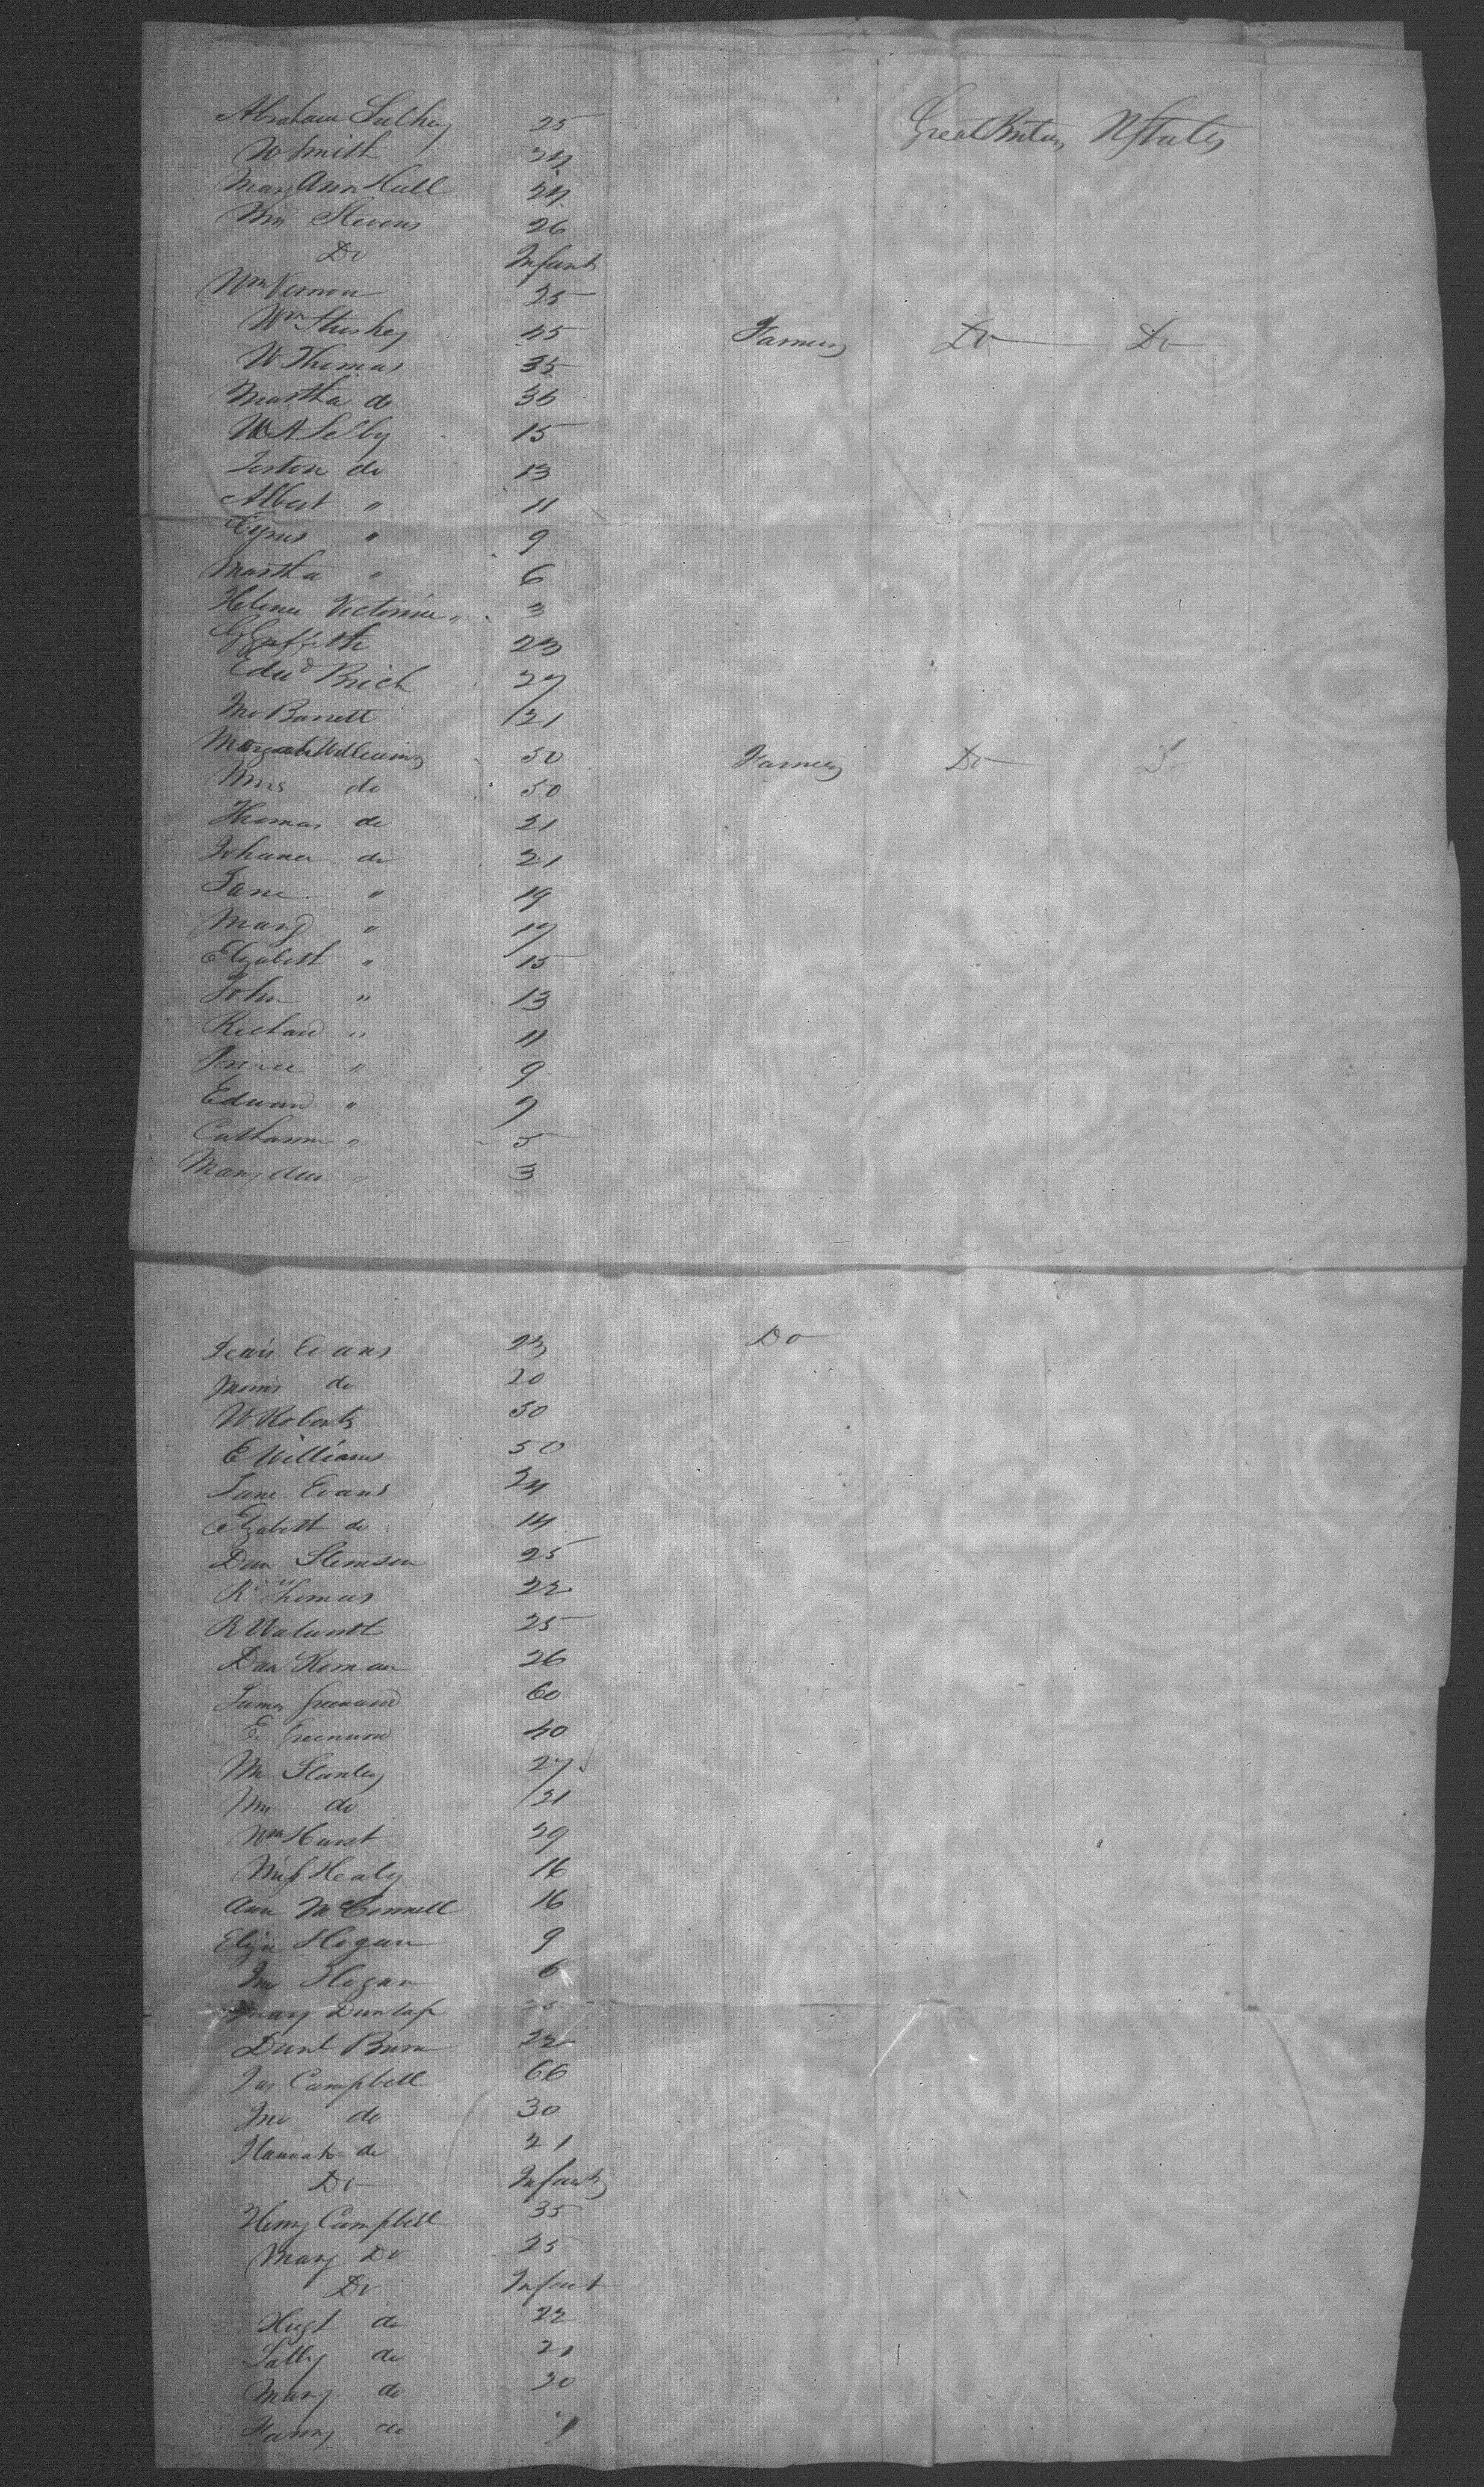 Abraham 25 Great Britain U States
W Smith 24
Mary Ann Hull 24
Wm Stevens 26
Do Infant
Wm Vernon 25
Wm 45 Farmer Do Do
W Thomas 35
Martha do 36
W A Selby 15
do 13
Albert " 11
Cyrus " 9
Martha " 6
Helena Victoria " 3
Griffith 23
Edwd 27
Barrett 21
Margaret Williams 50 Farmer Do Do
Mrs do 50
Thomas do 21
Johana do 21
Jane " 19
Mary " 17
Elizabeth " 15
John " 13
Richard " 11
" 9
Edward " 7
Catharine " 5
Mary Ann " 3
Lewis Evans 23 Do
Morris do 20
W Roberts 50
E Williams 50
Jane Evans 24
Elizabeth do 14
Dan 25
Rd Thomas 22
R 25
Dan 26
James Greenwood 60
E. Greenwood 40
Stanley 27
do 21
Wm Hurst 29
Miss Healy 16
Ann McConnell 16
Eliza Hogan 9
Hogan 6
Mary Dunlap
22
Jas Campbell 66
Jno do 30
Hannah do 21
Do Infant
Henry Campbell 35
Mary Do 25
Do Infant
Hugh do 22
Sally do 21
Mary do 20
Fanny do